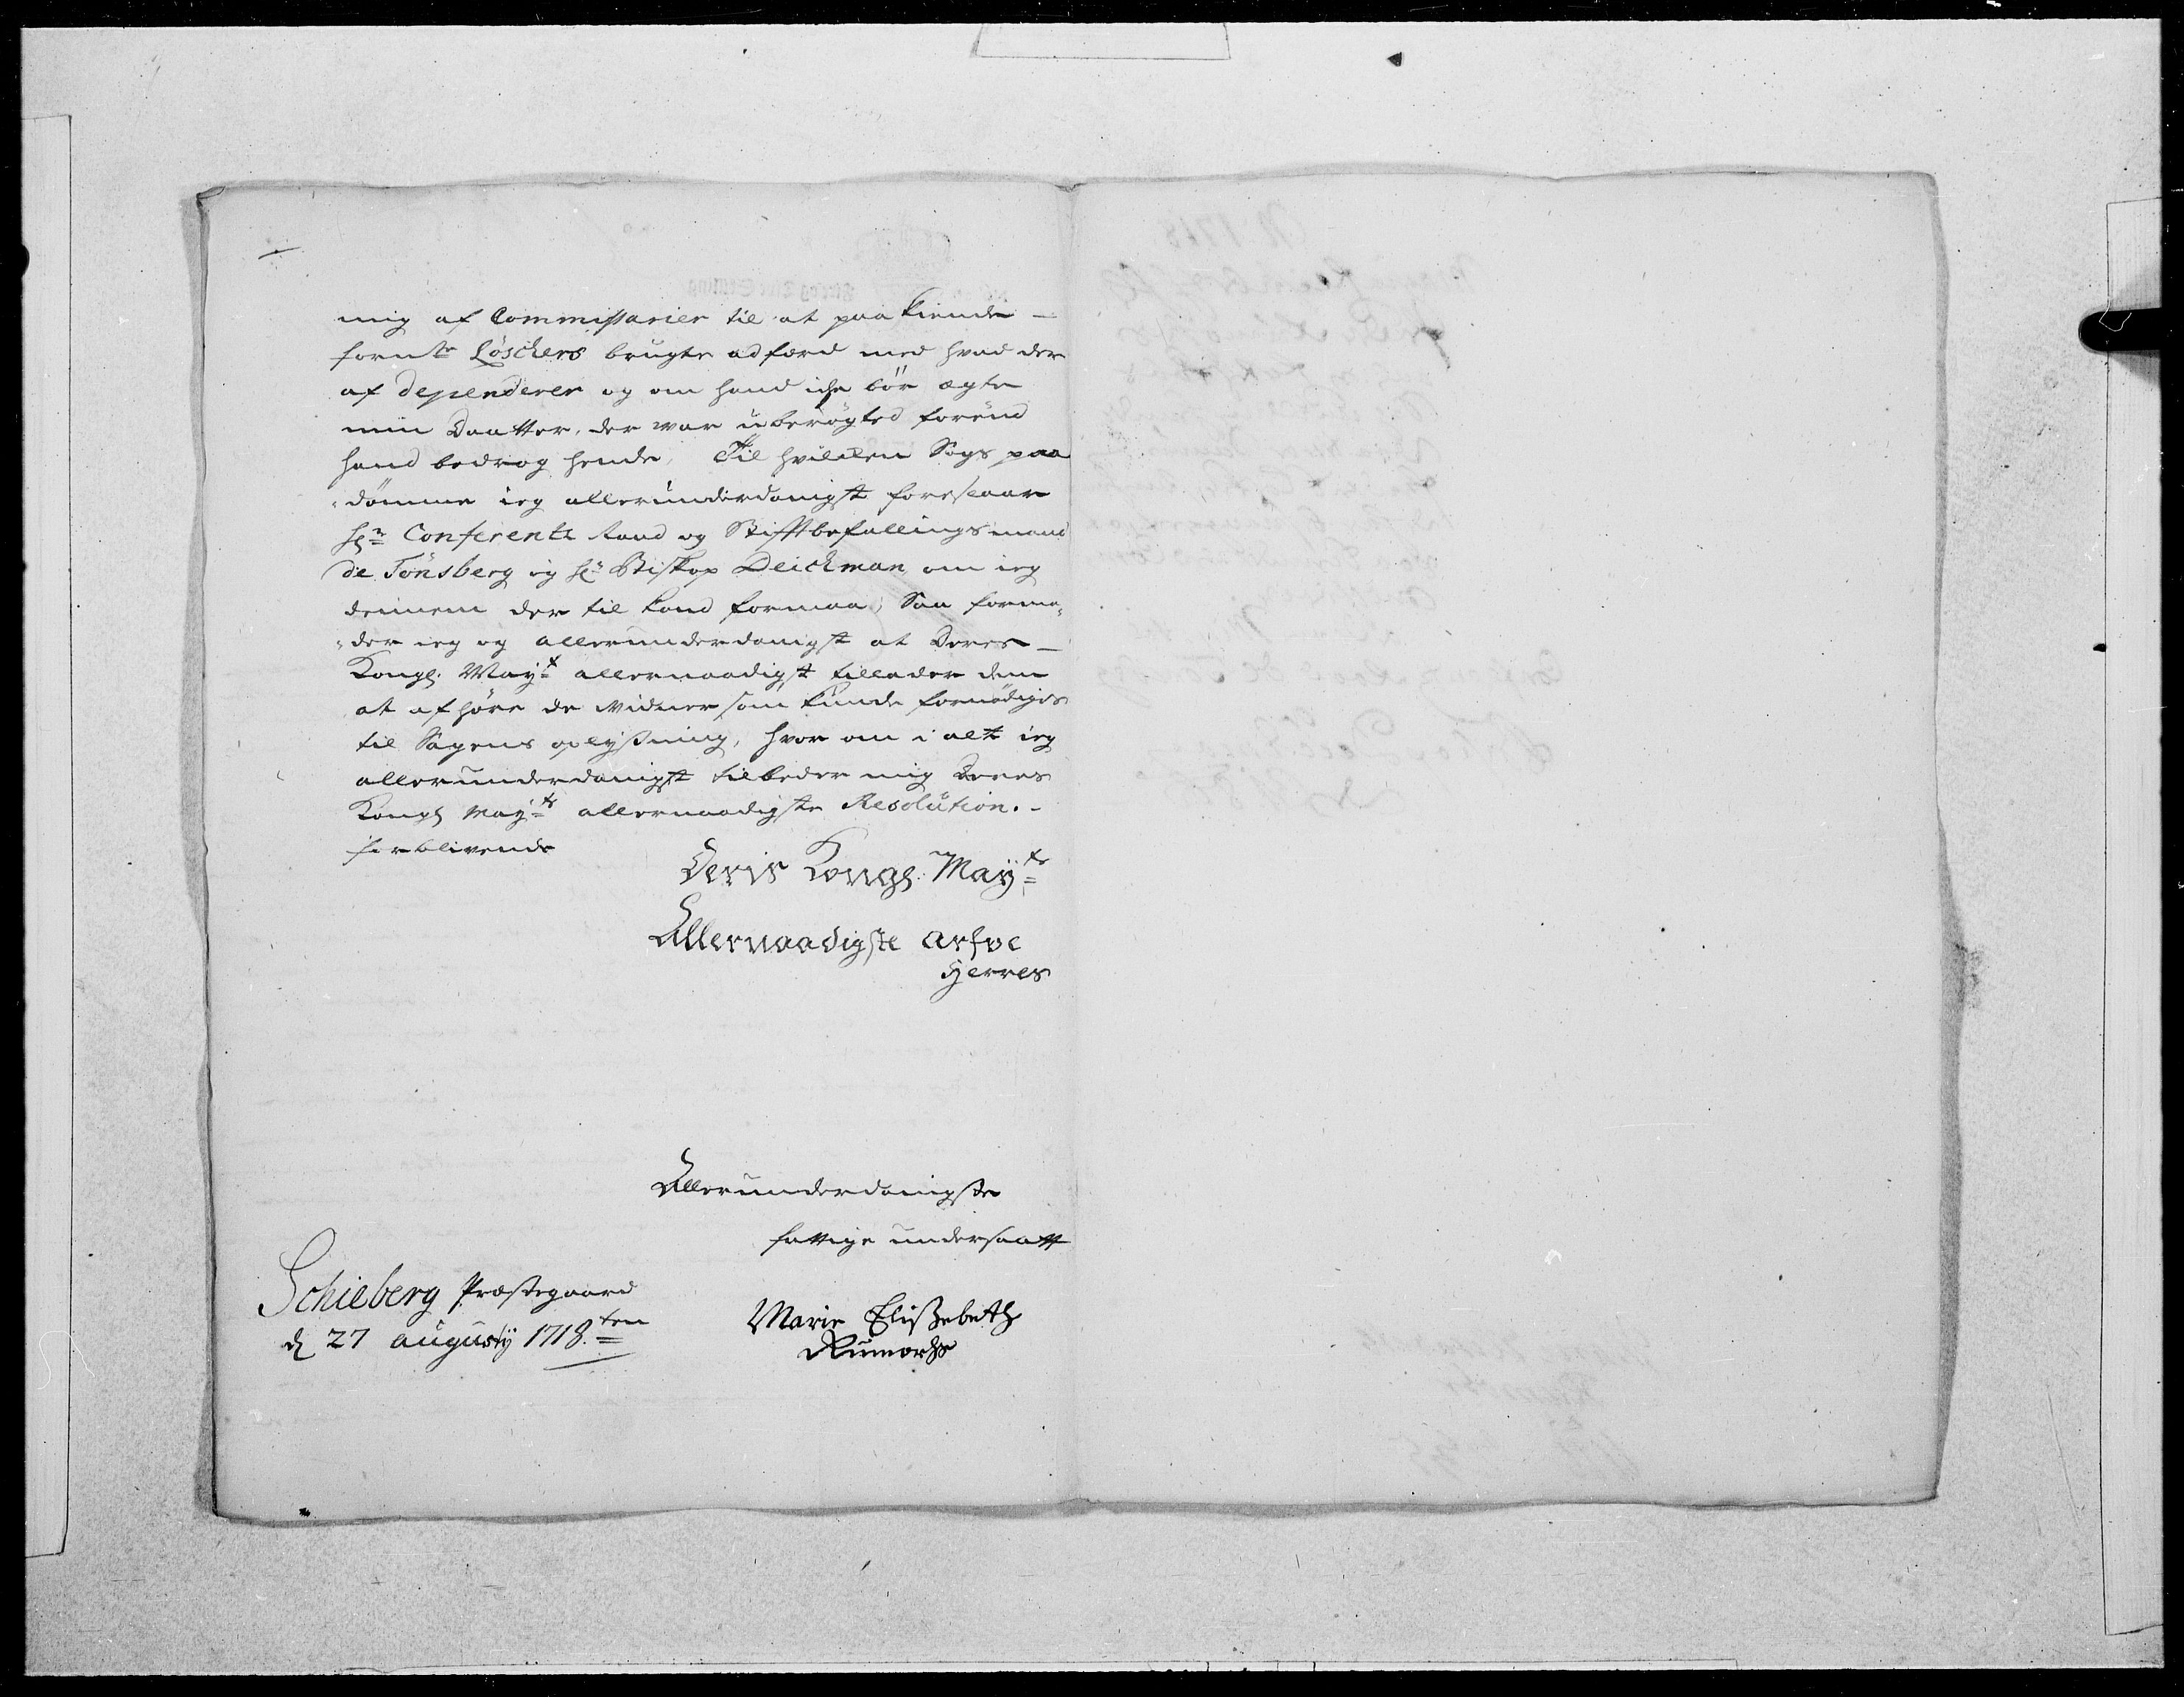 mig af Commissarier til at paakiende
fornte Løschers brugte adfærd med hvad der
af dependerer og om hand iche bör ægte
min Daatter, der war uberögted forend
hand bedrog hende, Til hvilcken Sags paa
dömme ieg allerunderdanigst foreslaar
Hr Conferentz Raad og Stifftbefallingsmand
de Tonsberg og Hr Biskop Deichman om ieg
dennem der til kand formaa, Saa formo¬
der ieg og allerunderdanigst at Deres
Kongl. Mayt allernaadigst tillader dem
at afhöre de Widner som kunde fornödiges
til Sagens oplyszning, hvor om i alt ieg
allerunderdanigst tilbeder mig Deres
Kongl Mayts allernaadigste Resolution.
forblivende
Deris Kongl. Mayts
Allernaadigste arfve
Herres
Allerunderdanigste
fattige undersaatt
Schieberg Præstegaard
d 27 augustij 1718.ten
Marie Eliszebeth
Rumorhs